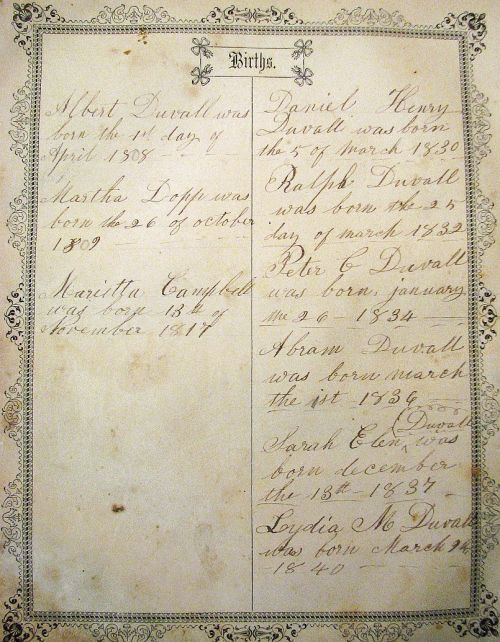 Births.
Albert Duvall was
born the 1st day of
April 1808
Martha Dopp was
born the 26 of october
1809
Marietta Campbell
was born 13th of
November 1817
Daniel Henry
Duvall was born
the 5 of march 1830
Ralph Duvall
was born the 25
day of march 1832
Peter G Duvall
was born january
the 26 - 1834
Abram Duvall
was born march
the 1st 1836
Sarah Elen (Duvall) was
born december
the 13th - 1837
Lydia M Duvall
was born March
1840